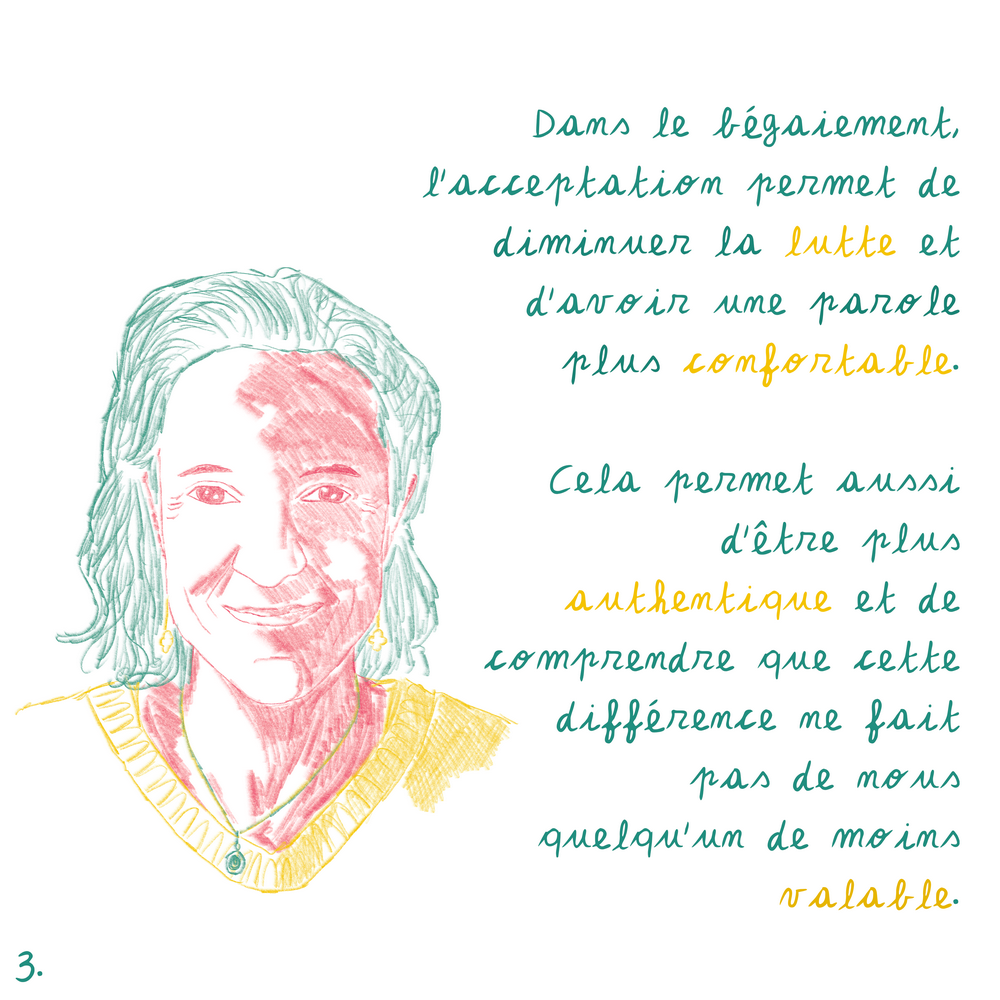 Dans le bégaiement,
l'acceptation permet de
diminuer la lutte et
d'avoir une parole
plus confortable.
Cela permet aussi
d'être plus
authentique et de
comprendre que cette
différence ne fait
pas de nous
quelqu'un de moins
valable.
3.